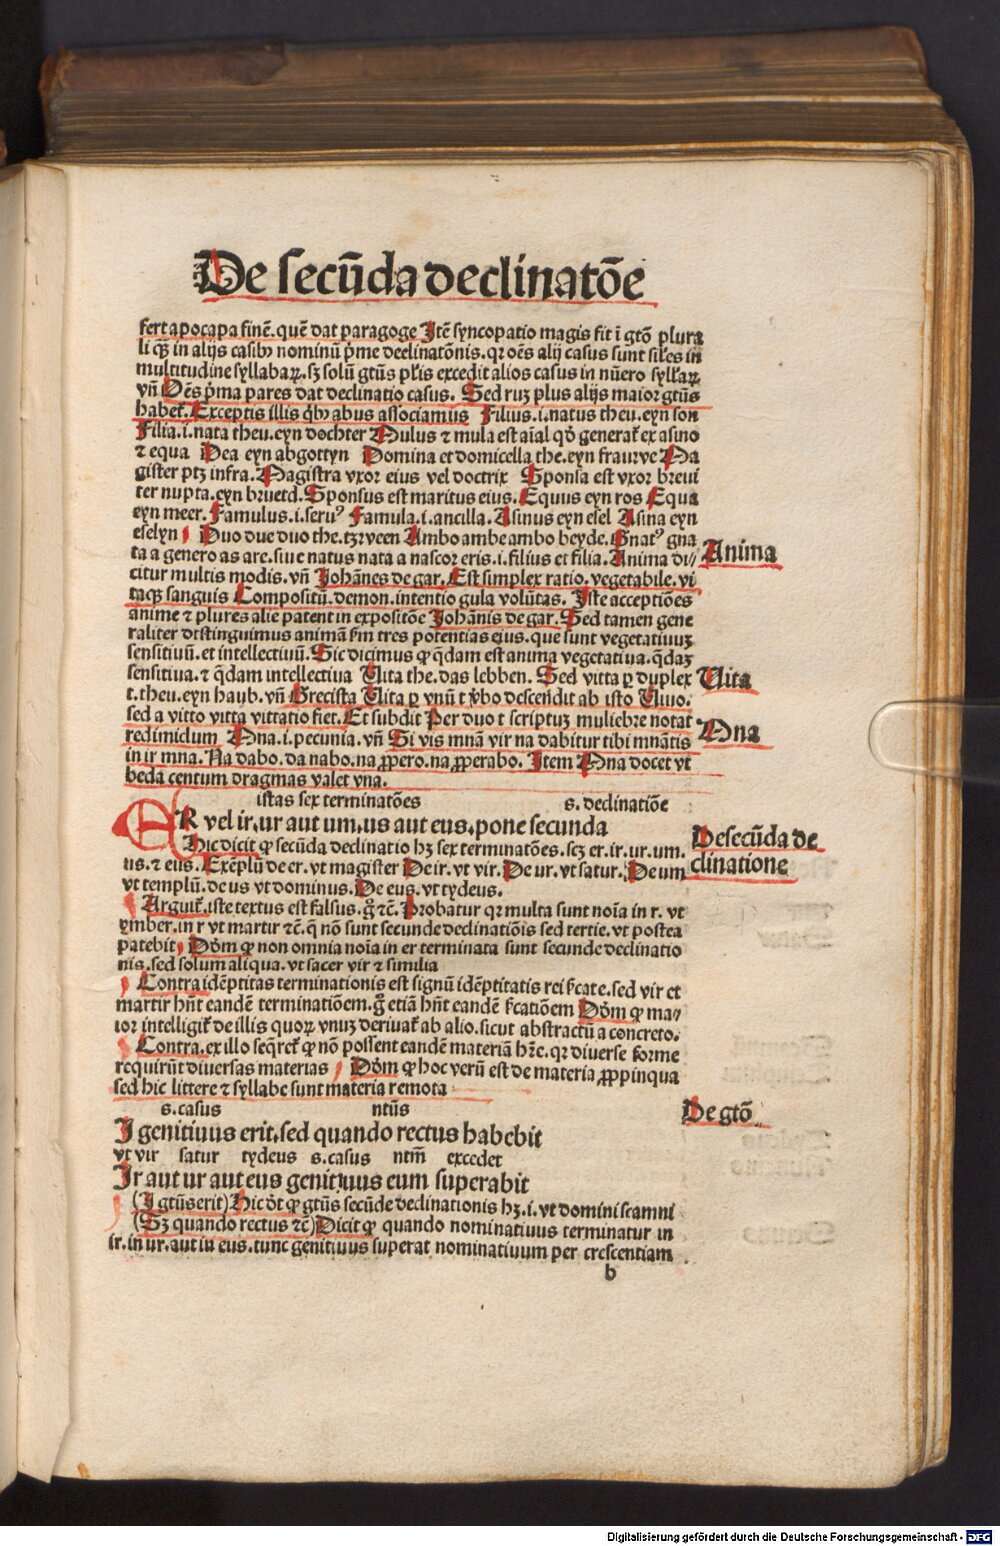 De secūda declinatōe
fert apocapa finē. quē dat paragoge Itē syncopatio magis fit ī gtō plura
li qȝ in alijs casibꝰ nominū p̄me declinatōnis. qr oēs alij casus sunt siles in
multitudine syllabaꝝ. sȝ solū gtūs pl̄is excedit alios casus in nūero syllaꝝ
vn̄ Oēs p̄ma pares dat declinatio casus. Sed ruȝ plus alijs maior gtūs
habet. Exceptis illis qb̄ abus associamus Filius .i. natus theu. eyn son
Filia .i. nata theu. eyn dochter Mulus ⁊ mula est aīal qd̄ generat̄ ex asino
⁊ equa Dea eyn abgottyn Domina et domicella the. eyn fraurve Ma
gister ptȝ infra. Magistra vxor eius vel doctrix Sponsa est vxor breui
ter nupta. eyn bruetd. Sponsus est maritus eius. Equus eyn ros Equa
eyn meer. Famulus .i. seruꝰ Famula .i. ancilla. Asinus eyn esel Asina eyn
eselyn Duo due duo the. tzrveen Ambo ambe ambo beyde. Gnatꝰ gna
ta a genero as are. siue natus nata a nascor eris .i. filius et filia. Anima di//
citur multis modis. vn̄ Johānes de gar. Est simplex ratio. vegetabile. vi
taqȝ sanguis Compositū. demon. intentio gula volūtas. Iste acceptiōes
anime ⁊ plures alie patent in expositōe Johānis de gar. Sed tamen gene
raliter dtstinguimus animā s̄m tres potentias eius. que sunt vegetatiuuȝ
sensitiuū. et intellectiuū. Sic dicimus ꝙ q̄dam est anima vegetatiua. q̄daȝ
sensitiua. ⁊ q̄dam intellectiua Uita the. das lebben. Sed vitta ꝑ duplex
t. theu. eyn haub. vn̄ Grecista Uita ꝑ vnū t v̄bo descendit ab isto Uiuo.
sed a vitto vitta vittatio fiet. Et subdit Per duo t scriptuȝ muliebre notat
redimidum Mna .i. pecunia. vn̄ Si vis mnā vir na dabitur tibi mnātis
in ir mna. Na dabo. da nabo. na ꝓpero. na ꝓperabo. Item Mna docet vt
beda centum dragmas valet vna.
Anima
Uita
Mna
istas sex terminatōes s. declinatiōe
ER vel ir. ur aut um. us aut eus. pone secunda
Hic dicit ꝙ secūda declinatio hȝ sex terminatōes. scȝ er. ir. ur. um.
us. ⁊ eus. Exēplū de er. vt magister De ir. vt vir. De ur. vt satur. De um
vt templū. de us vt dominus. De eus. vt tydeus.
De secūda de
clinatione
Arguit̄. iste textus est falsus. g̊ ⁊c̄. Probatur qr multa sunt noīa in r. vt
ymber. in r vt martir ⁊c̄. q̄ nō sunt secunde declinatiōis sed tertie. vt postea
patebit Dōm ꝙ non omnia noīa in er terminata sunt secunde declinatio
nis. sed solum aliqua. vt sacer vir ⁊ similia
Contra idēptitas terminationis est signū idēptitatis rei s̄cate. sed vir et
martir hn̄t eandē terminatiōem. g̊ etiā hn̄t eandē s̄catiōem Dōm ꝙ ma//
ior intelligit̄ de illis quoꝝ vnuȝ deriuat̄ ab alio. sicut abstractū a concreto.
Contra. ex illo seq̄ret̄ ꝙ nō possent eandē materiā hr̄e. qr diuerse forme
requirūt diuersas materias Dōm ꝙ hoc verū est de materia ꝓpinqua
sed hic littere ⁊ syllabe sunt materia remota
De gtō
s. casus ntūs
I genitiuus erit. sed quando rectus habebit
vt vir satur tydeus s. casus ntm̄ excedet
Ir aut ur aut eus genitiuus eum superabit
(I gtūs erit) Hic dt̄ ꝙ gtūs secūde declinationis hȝ .i. vt domini scamni
(Sȝ quando rectus ⁊c̄) Dicit ꝙ quando nominatiuus terminatur in
ir. in ur. aut in eus. tunc genitiuus superat nominatiuum per crescentiam
b
Digitalisierung gefördert durch die Deutsche Forschungsgemeinschaft - DFG